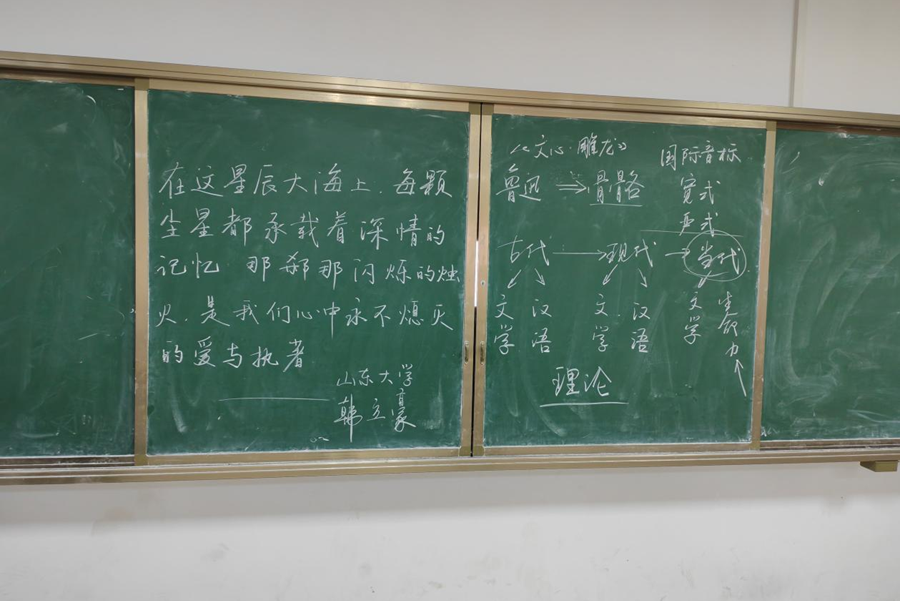 在这星辰大海上.每颗
尘星都承载着深情的
记忆 那刹那闪烁的烛
火.是我们心中永不熄灭
的爱与执着
山东大学
韩立豪
《文心·雕龙》
鲁迅 ⇒ 骨骼
国际音标
宽式
严式
古代 → 现代 → 当代
文学 汉语 文学 汉语 文学 生命力
理论